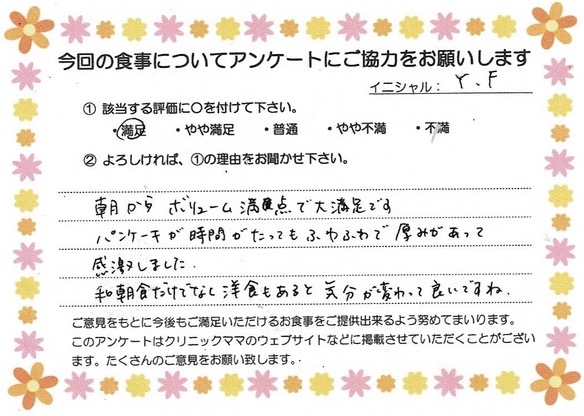 今回の食事についてアンケートにご協力をお願いします
イニシャル： Y.F
① 該当する評価に〇を付けて下さい。
・満足 ・やや満足 ・普通 ・やや不満 ・不満
② よろしければ、①の理由をお聞かせ下さい。
朝から ボリューム満点で大満足です
パンケーキが時間がたってもふわふわで厚みがあって
感激しました.
和朝食だけでなく洋食もあると気分が変わって良いですね.
ご意見をもとに今後もご満足いただけるお食事をご提供出来るよう努めてまいります。
このアンケートはクリニックママのウェブサイトなどに掲載させていただくことがござい
ます。たくさんのご意見をお願い致します。